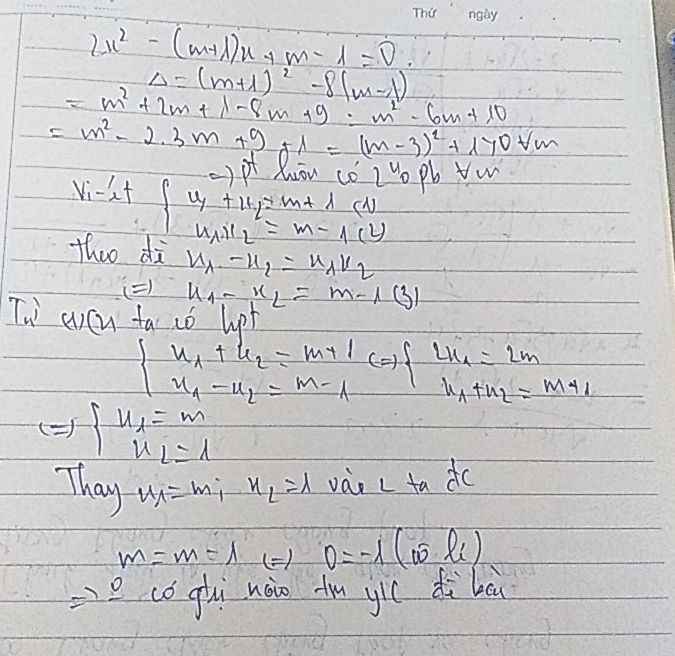 Thứ ngày
2x² - (m+1)x + m - 1 = 0.
Δ = (m+1)² - 8(m-1)
= m² + 2m + 1 - 8m + 9 = m² - 6m + 10
= m² - 2.3m + 9 + 1 = (m-3)² + 1 > 0 ∀m
=> pt luôn có 2 n⁰ pb ∀m
Vi-ét { x₁ + x₂ = m + 1 (1)
x₁x₂ = m - 1 (2)
theo đề x₁ - x₂ = x₁x₂
(=) x₁ - x₂ = m - 1 (3)
Từ (1)(3) ta có hpt
{ x₁ + x₂ = m + 1 (=) { 2x₁ = 2m
x₁ - x₂ = m - 1 x₁ + x₂ = m + 1
(=) { x₁ = m
x₂ = 1
Thay x₁ = m; x₂ = 1 vào 2 ta đc
m = m - 1 (=) 0 = -1 (vô lí)
=> có gtrị nào tm y/c đề bài